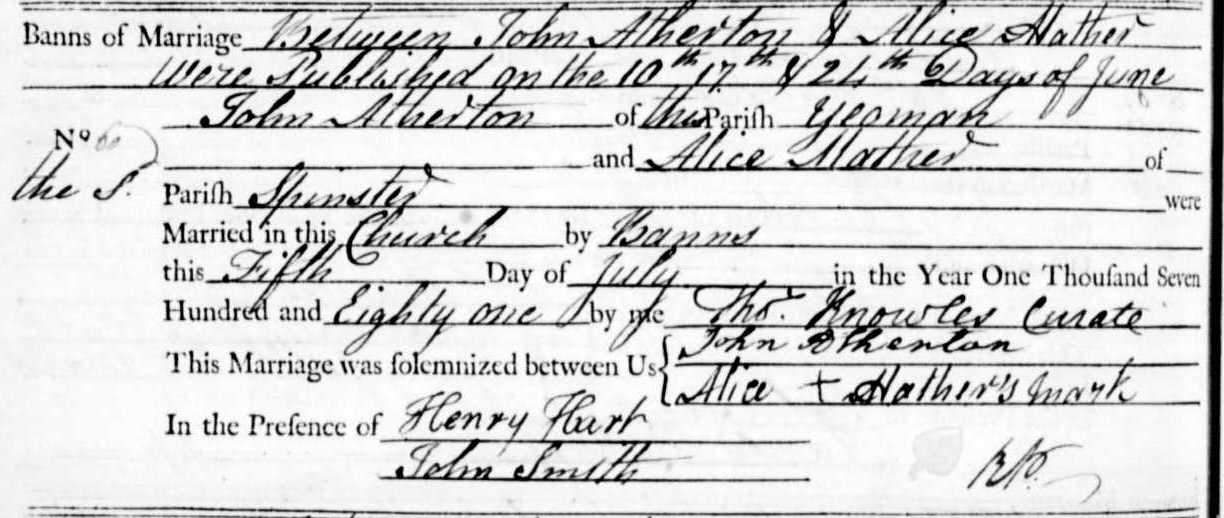 Banns of Marriage Between John Atherton & Alice Hather
Were Published on the 10th 17th & 24th Days of June
John Atherton of this Pariſh Yeoman
No
and Alice Mather of
the S. Pariſh Spinster were
Married in this Church by Banns
this Fifth Day of July in the Year One Thouſand Seven
Hundred and Eighty one by me Thos. Knowles Curate
This Marriage was ſolemnized between Us { John Atherton
Alice + Hather's mark
In the Preſence of Henry Hart
John Smith